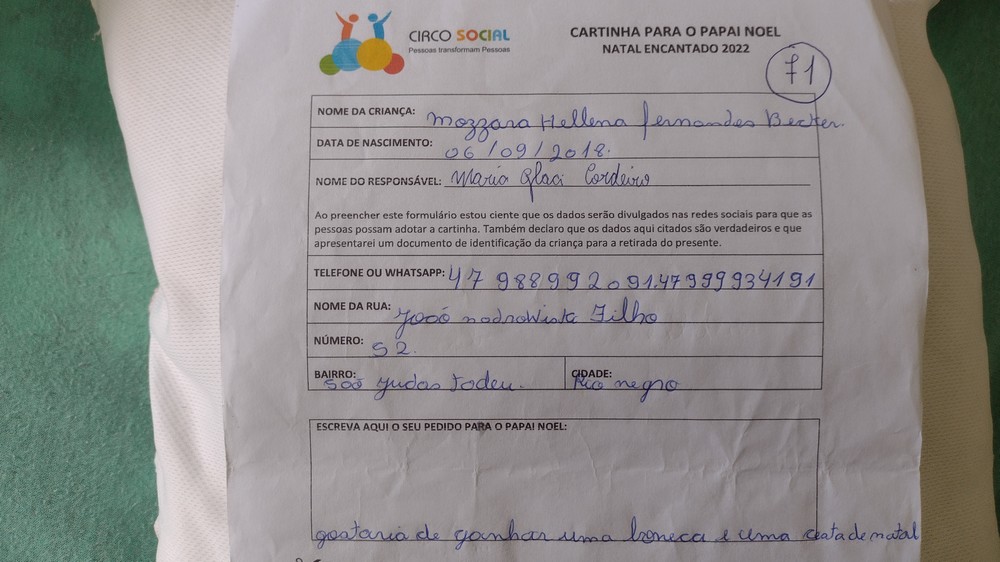 CIRCO SOCIAL
Pessoas transformam Pessoas
CARTINHA PARA O PAPAI NOEL
NATAL ENCANTADO 2022
71
NOME DA CRIANÇA: Mozzara Hellena fernandes Becker.
DATA DE NASCIMENTO: 06/09/2018.
NOME DO RESPONSÁVEL: Maria Glaci Cordeiro
Ao preencher este formulário estou ciente que os dados serão divulgados nas redes sociais para que as
pessoas possam adotar a cartinha. Também declaro que os dados aqui citados são verdadeiros e que
apresentarei um documento de identificação da criança para a retirada do presente.
TELEFONE OU WHATSAPP: 47 988992091.47999934191
NOME DA RUA: João Filho
NÚMERO: 52.
BAIRRO: são judas tadeu. CIDADE: Rio negro
ESCREVA AQUI O SEU PEDIDO PARA O PAPAI NOEL:
gostaria de ganhar uma boneca e uma cesta de natal